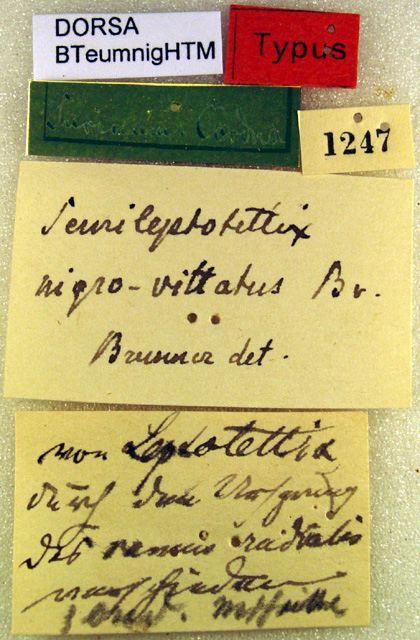 DORSA
BTeumnigHTM
Typus
1247
Semileptotettix
nigro-vittatus Br.
Brunner det.
von Leptotettix
durch den Ursprung
des ramus radialis
verschieden